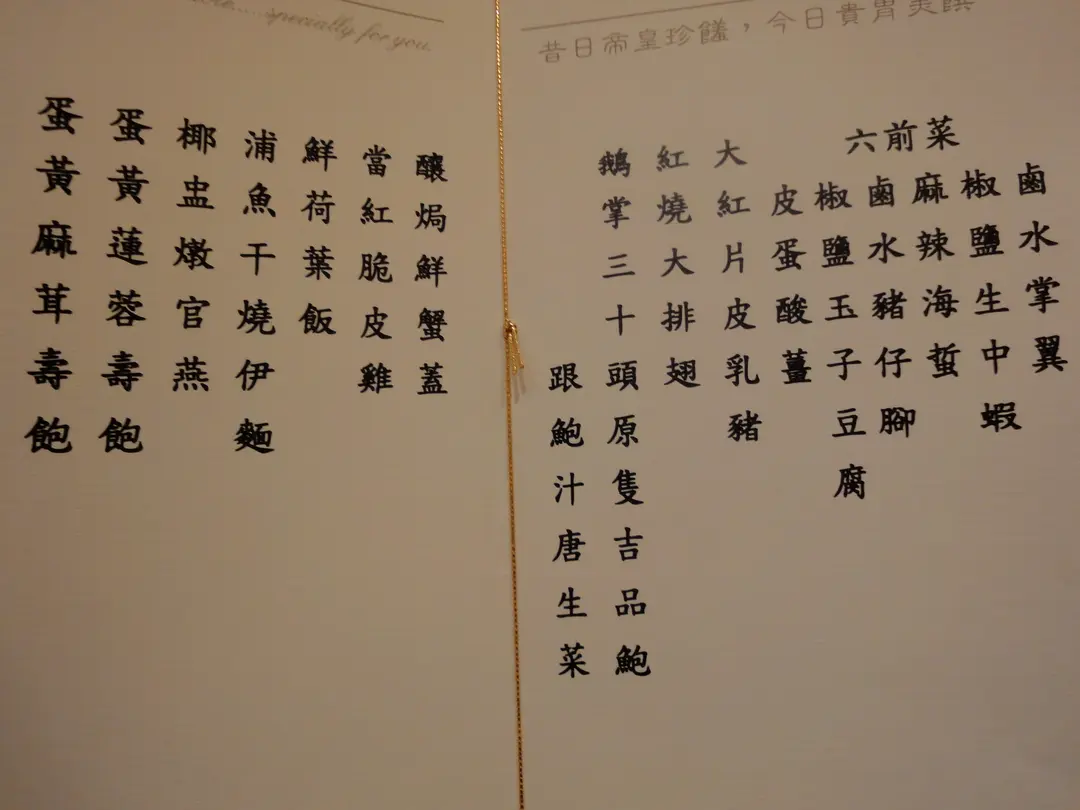 昔日帝皇珍饈，今日貴胄美饌
六前菜
鹵水掌翼
椒鹽生中蝦
麻辣海蜇
鹵水豬仔腳
椒鹽玉子豆腐
皮蛋酸薑
大紅片皮乳豬
紅燒大排翅
鵝掌三十頭原隻吉品鮑
跟鮑汁唐生菜
specially for you
釀焗鮮蟹蓋
當紅脆皮雞
鮮荷葉飯
浦魚干燒伊麵
椰盅燉官燕
蛋黃蓮蓉壽飽
蛋黃麻茸壽飽